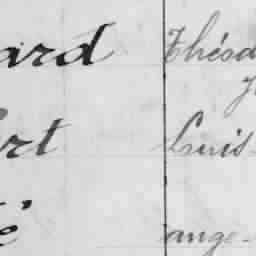 ard Théod
ert Louis
é ange-